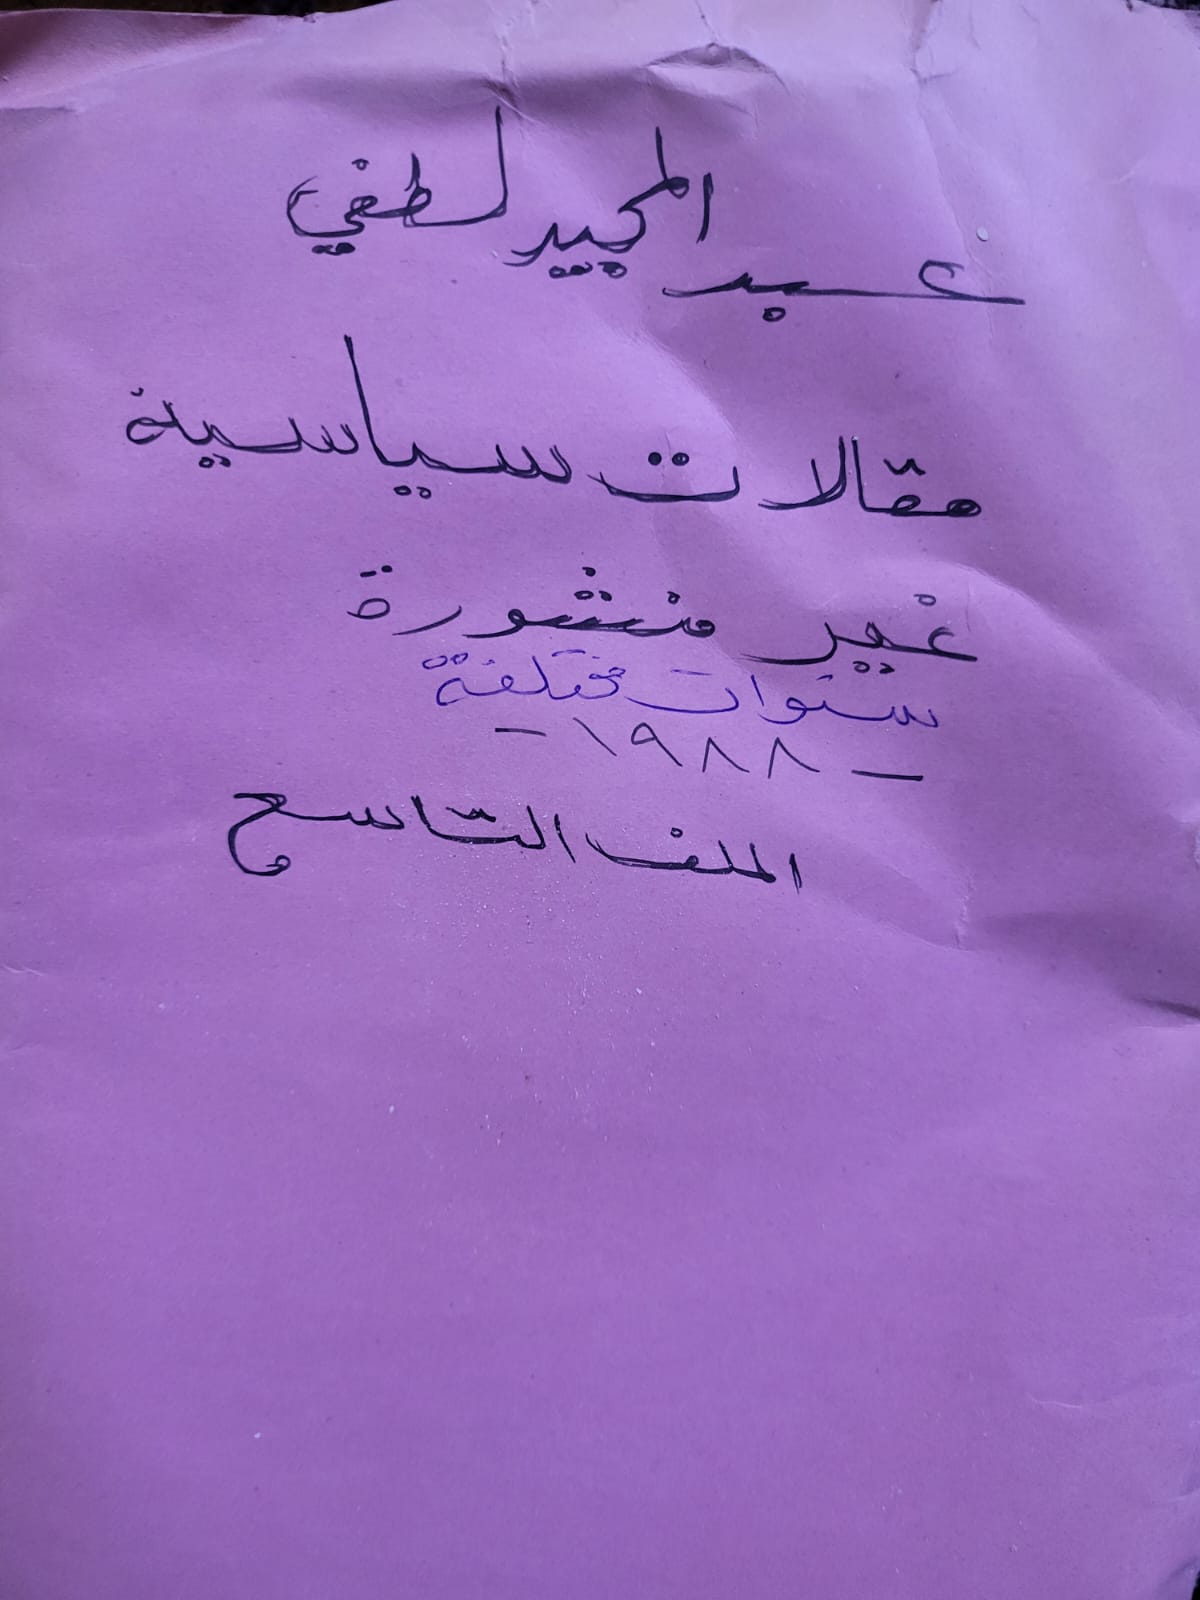 عبد المجيد لطفي
مقالات سياسية
غير منشورة
سنوات مختلفة
- ١٩٨٨ -
الملف التاسع